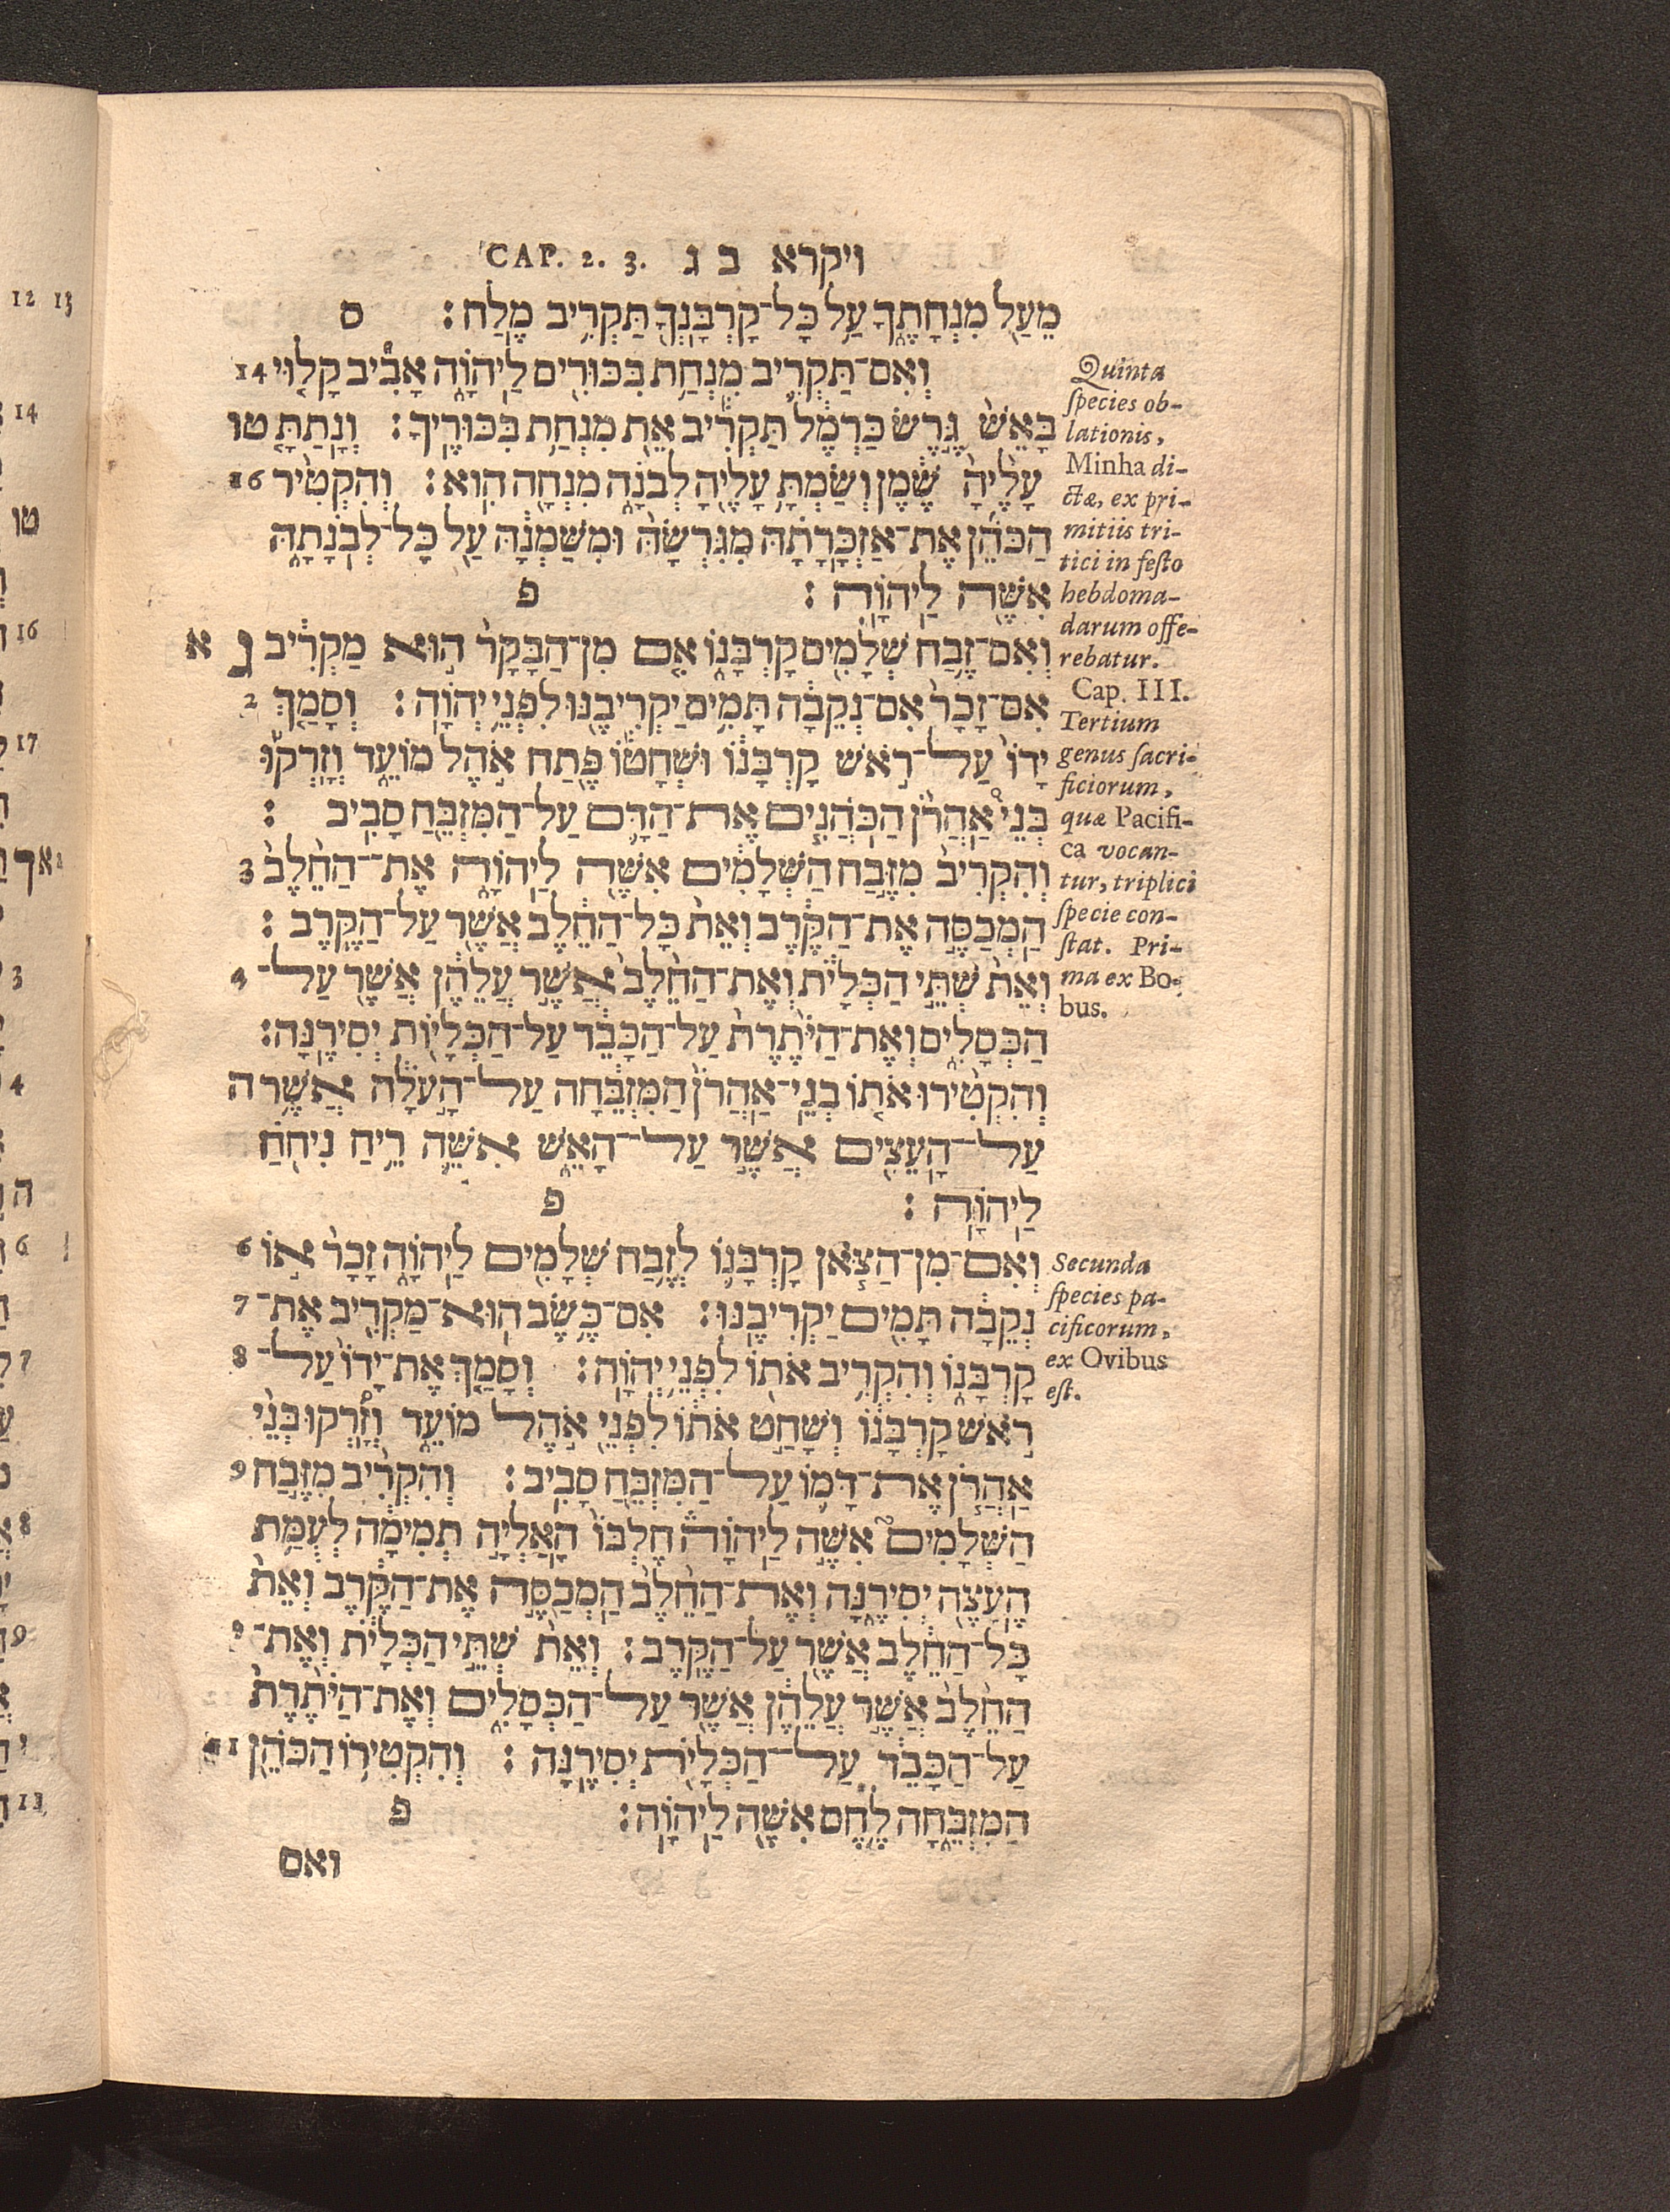 CAP. 2. 3. ויקרא ב ג
מֵעַל מִנְחָתֶךָ עַל כָּל־קָרְבָּנְךָ תַּקְרִיב מֶלַח׃ ס
וְאִם־תַּקְרִיב מִנְחַת בִּכּוּרִים לַיהוָֹה אָבִיב קָלוּי 14
בָּאֵשׁ גֶּרֶשׂ כַּרְמֶל תַּקְרִיב אֵת מִנְחַת בִּכּוּרֶיךָ׃ וְנָתַתָּ טו
עָלֶיהָ שֶׁמֶן וְשַׂמְתָּ עָלֶיהָ לְבֹנָה מִנְחָה הִוא׃ וְהִקְטִיר 16
הַכֹּהֵן אֶת־אַזְכָּרָתָהּ מִגִּרְשָׂהּ וּמִשַּׁמְנָהּ עַל כָּל־לְבֹנָתָהּ
אִשֶּׁה לַיהוָֹה׃ פ
וְאִם־זֶבַח שְׁלָמִים קָרְבָּנוֹ אִם מִן־הַבָּקָר הוּא מַקְרִיב ג א
אִם־זָכָר אִם־נְקֵבָה תָּמִים יַקְרִיבֶנּוּ לִפְנֵי יְהוָֹה׃ וְסָמַךְ 2
יָדוֹ עַל־רֹאשׁ קָרְבָּנוֹ וּשְׁחָטוֹ פֶּתַח אֹהֶל מוֹעֵד וְזָרְקוּ
בְּנֵי אַהֲרֹן הַכֹּהֲנִים אֶת־הַדָּם עַל־הַמִּזְבֵּחַ סָבִיב׃
וְהִקְרִיב מִזֶּבַח הַשְּׁלָמִים אִשֶּׁה לַיהוָֹה אֶת־הַחֵלֶב 3
הַמְכַסֶּה אֶת־הַקֶּרֶב וְאֵת כָּל־הַחֵלֶב אֲשֶׁר עַל־הַקֶּרֶב׃
וְאֵת שְׁתֵּי הַכְּלָיֹת וְאֶת־הַחֵלֶב אֲשֶׁר עֲלֵהֶן אֲשֶׁר עַל־ 4
הַכְּסָלִים וְאֶת־הַיֹּתֶרֶת עַל־הַכָּבֵד עַל־הַכְּלָיוֹת יְסִירֶנָּה׃
וְהִקְטִירוּ אֹתוֹ בְנֵי־אַהֲרֹן הַמִּזְבֵּחָה עַל־הָעֹלָה אֲשֶׁר ה
עַל־הָעֵצִים אֲשֶׁר עַל־הָאֵשׁ אִשֵּׁה רֵיחַ נִיחֹחַ
לַיהוָֹה׃ פ
וְאִם־מִן־הַצֹּאן קָרְבָּנוֹ לְזֶבַח שְׁלָמִים לַיהוָֹה זָכָר אוֹ 6
נְקֵבָה תָּמִים יַקְרִיבֶנּוּ׃ אִם־כֶּשֶׂב הוּא־מַקְרִיב אֶת־ 7
קָרְבָּנוֹ וְהִקְרִיב אֹתוֹ לִפְנֵי יְהוָֹה׃ וְסָמַךְ אֶת־יָדוֹ עַל־ 8
רֹאשׁ קָרְבָּנוֹ וְשָׁחַט אֹתוֹ לִפְנֵי אֹהֶל מוֹעֵד וְזָרְקוּ בְּנֵי
אַהֲרֹן אֶת־דָּמוֹ עַל־הַמִּזְבֵּחַ סָבִיב׃ וְהִקְרִיב מִזֶּבַח 9
הַשְּׁלָמִים אִשֶּׁה לַיהוָֹה חֶלְבּוֹ הָאַלְיָה תְמִימָה לְעֻמַּת
הֶעָצֶה יְסִירֶנָּה וְאֶת־הַחֵלֶב הַמְכַסֶּה אֶת־הַקֶּרֶב וְאֵת
כָּל־הַחֵלֶב אֲשֶׁר עַל־הַקֶּרֶב׃ וְאֵת שְׁתֵּי הַכְּלָיֹת וְאֶת־ י
הַחֵלֶב אֲשֶׁר עֲלֵהֶן אֲשֶׁר עַל־הַכְּסָלִים וְאֶת־הַיֹּתֶרֶת
עַל־הַכָּבֵד עַל־הַכְּלָיֹת יְסִירֶנָּה׃ וְהִקְטִירוֹ הַכֹּהֵן 11
הַמִּזְבֵּחָה לֶחֶם אִשֶּׁה לַיהוָֹה׃ פ
ואם
Quinta
species ob-
lationis,
Minha di-
ctæ, ex pri-
mitiis tri-
tici in festo
hebdoma-
darum offe-
rebatur.
Cap. III.
Tertium
genus sacri-
ficiorum,
quæ Pacifi-
ca vocan-
tur, triplici
specie con-
stat. Pri-
ma ex Bo-
bus.
Secunda
species pa-
cificorum,
ex Ovibus
est.
12 13
14
טו
16
17
3
4
ה
6
7
8
9
י
13